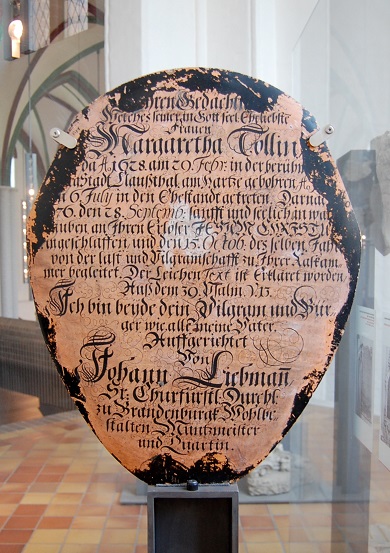 hren Gedächt
Welches seiner in Gott seel. Eheliebste
Frauen
Margaretha Tollin
da Aº 1628. am 20. Febr. in der berühm
Clausthal, am Hartz gebohren Aº
6 July in den Ehestandt getreten. Darnn
76. den 28. Septemb. sanfft und seelich in wa
uben an Ihren Erlöser IESUM CHRISTU
ingeschlaffen, und den 15. Octob. desselben Jah
von der last und Pilgramschafft zu Ihrer Rastkam
mer begleitet. Der Leichen Text ist Erkläret worden,
Auß dem 39. Psalm. V. 13.
Ich bin beyde dein Pilgram und Bür
ger wie alle meine Väter.
Auffgerichtet
Von
Johann Liebman̄
Sr: Churfürstl: Durchl:
zu Brandenburgk Wohlbe,
stalten Müntzmeister
und Quartin.